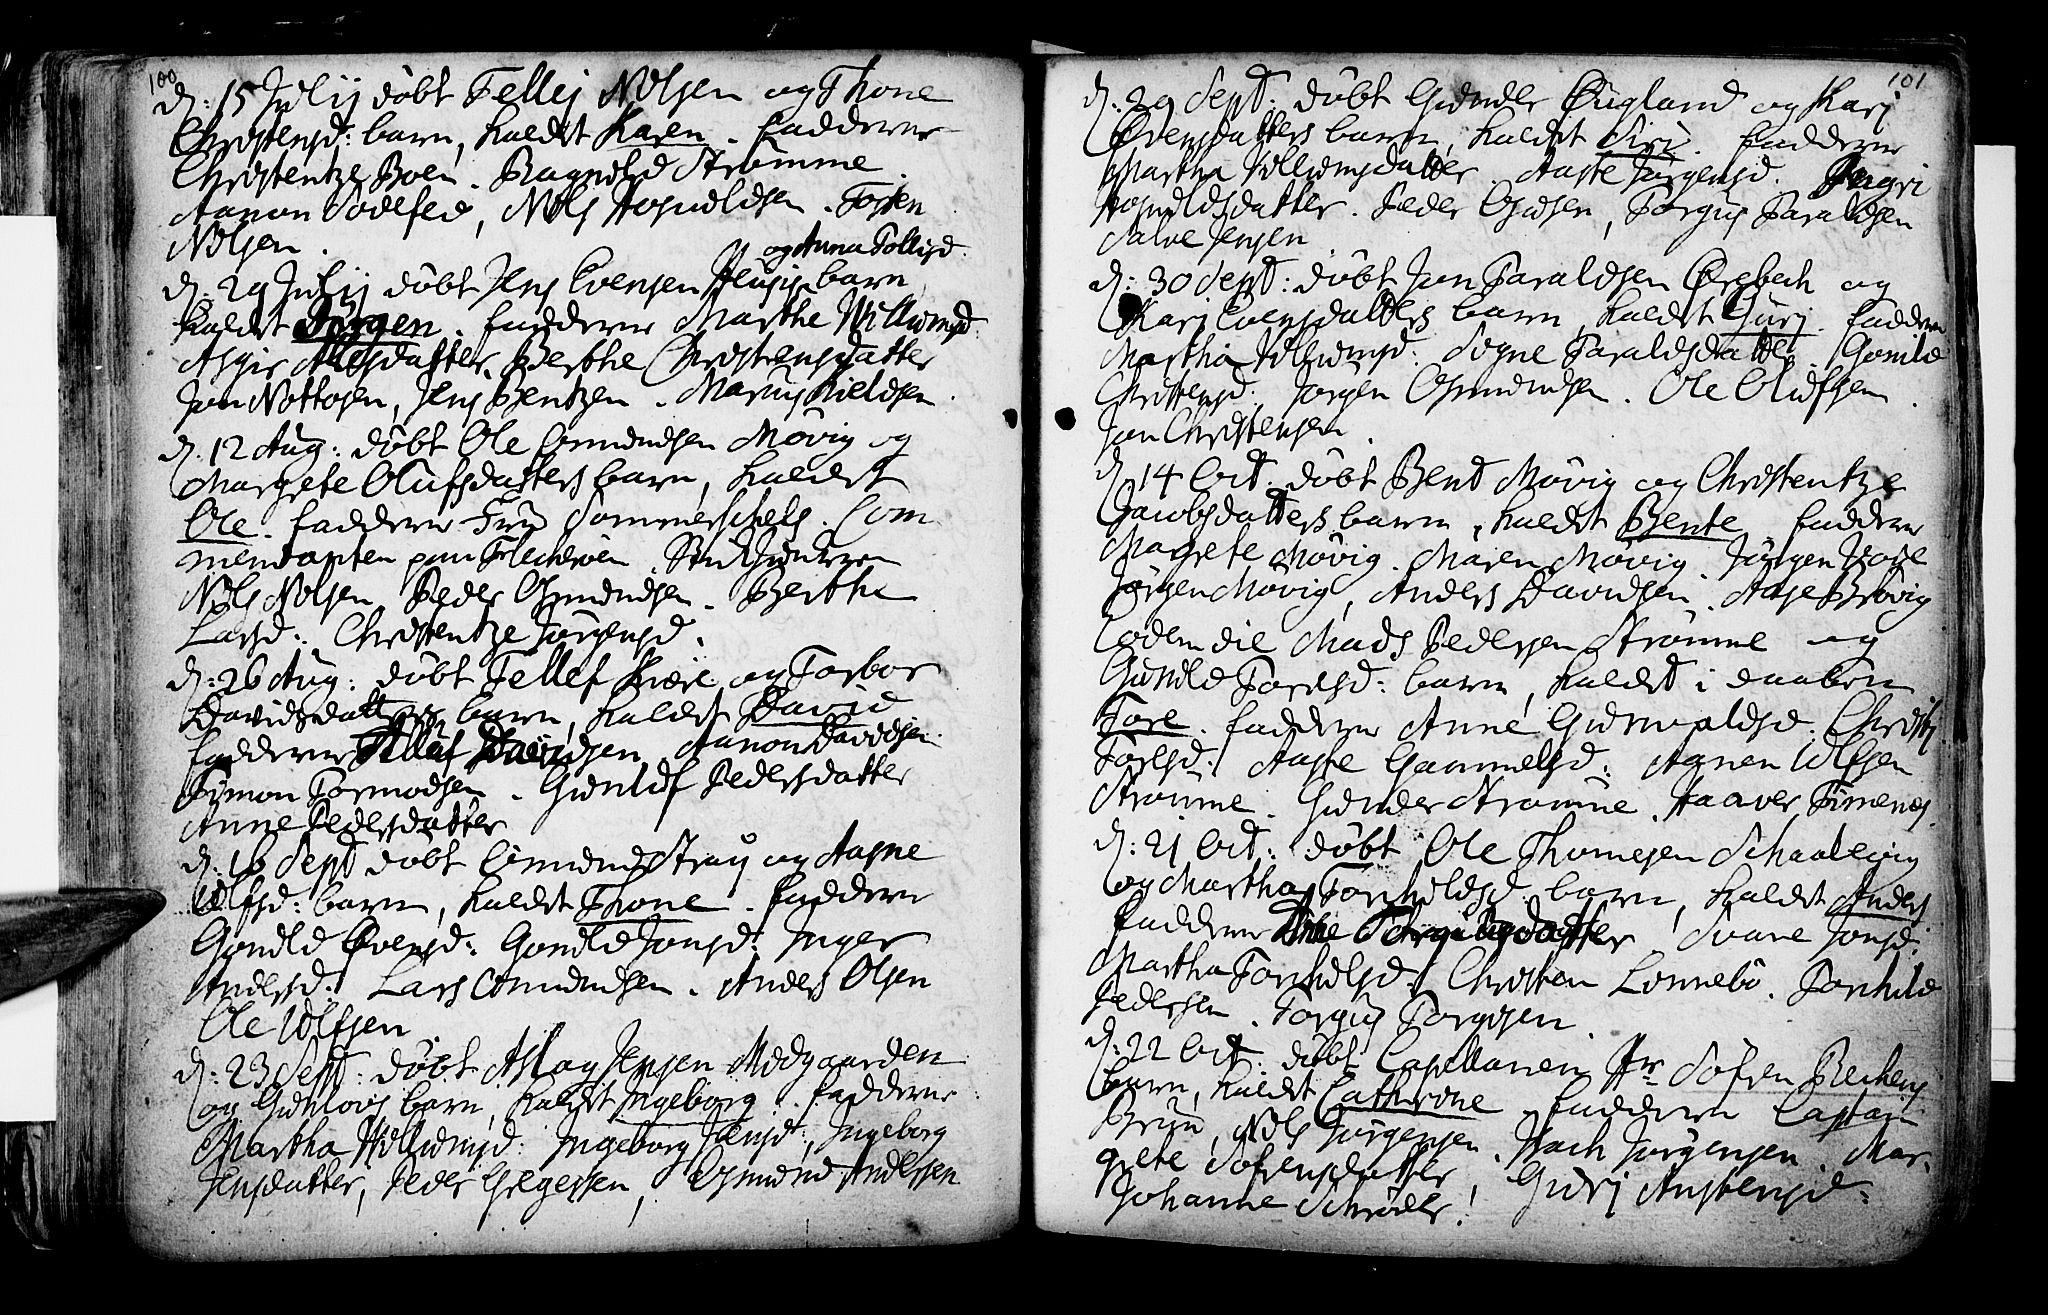 100
d: 15 Julij döbt Tellej Nilsen og Thone
Christensd: barn, kaldet Karen. fadderne
Christentze Boen. Ragnild Strömme
Aanon Sodefed, Nils Torgieldsen. Tosten
Nilsen.
og Anna Tollisd.
d: 29 Julij döbt Jens Evensen barn
kaldet Jörgen. fadderne Marthe Willumsd.
Asgir Alesdatter. Berthe Christensdatter
Jon Nottosen, Jens Bentzen. Marcus Kieldsen.
d. 12 Aug: döbt Ole Omundsen Mövig og
Margrete Olufsdatters barn, kaldet
Ole. fadderne Frue Sommerschels. Com
mendanten paa Fleckeröen.
Nils Nilsen Peder Osmundsen. Berthe
Larsd: Christentze Jörgensd.
d: 26 Aug: döbt Tellef Kiære og Torbor
Davidsdatters barn, kaldet David
fadderne Tellef Davidsen, Aanon Davidsen.
Simon Tormodsen. Gunlof Pedersdatter
Anne Pedersdatter
d. 16 Sept döbt Omund Stray og Aasne
Ulfsd: barn, kaldet Thone. fadderne
Gonild Evensd: Gonild Jonsd: Inger
Andersd: Lars Omundsen. Anders Olsen
Ole Ulfsen.
d: 23 Sept: döbt Aslag Jensen Midgaarden
og Gunlovs barn, kaldet Ingeborg. fadderne
Martha Willumsd: Ingeborg Jensd: Ingeborg
Jensdatter, Peder Gregersen, Osmund Andersen
101
d. 29 Sept: döbt Gunder Øugland og Karj
Evensdatters barn, kaldet Siri. fadderne
Martha Willumsdatter. Aaste Jörgensd. Ingri
Torgieldsdatter. Peder Olufsen, Torgus Taraldsen
Salve Jensen.
d: 30 Sept: döbt Jon Taraldsen Ørebech og
Karj Evensdatters barn, kaldet Gurj. fadderne
Martha Willumsd: Signe Taraldsdatter. Gonild
Christensd. Jörgen Osmundsen. Ole Olufsen.
Jon Christensen.
d. 14 Oct. döbt Bent Mövig og Christentze
Jacobsdatters barn, kaldet Bente fadderne
Margrete Mövig. Maren Mövig. Jörgen
Jörgen Mövig, Anders Davidsen. Aase Brövig
Eodem die Mads Pedersen Strömme og
Gunild Torisd: barn, kaldet i daaben
Tore. fadderne Anne Gunvaldsd: Christj
Torisd: Aaste Gammelsd: Aanen Ulfsen
Strömme. Gunder Strömme. Haaver Simens.
d: 21 Oct: döbt Ole Thomesen Schaalevig
og Martha Torkildsd. barn, kaldet Anders
fadderne Anne Torgiusdatter. Svane Jonsd:
Martha Torkildsd: Christen Lonnebö. Torkild
Pedersen. Torgus Torgusen.
d: 22 Oct. döbt Capellanen Hr Söfren Bechers
barn, kaldet Cathrine fadderne Captain
Brun, Nils Jörgensen. Isach Jörgensen. Mar-
grete Söfrensdatter, Gurj Austensd:
Johanne Schröder.